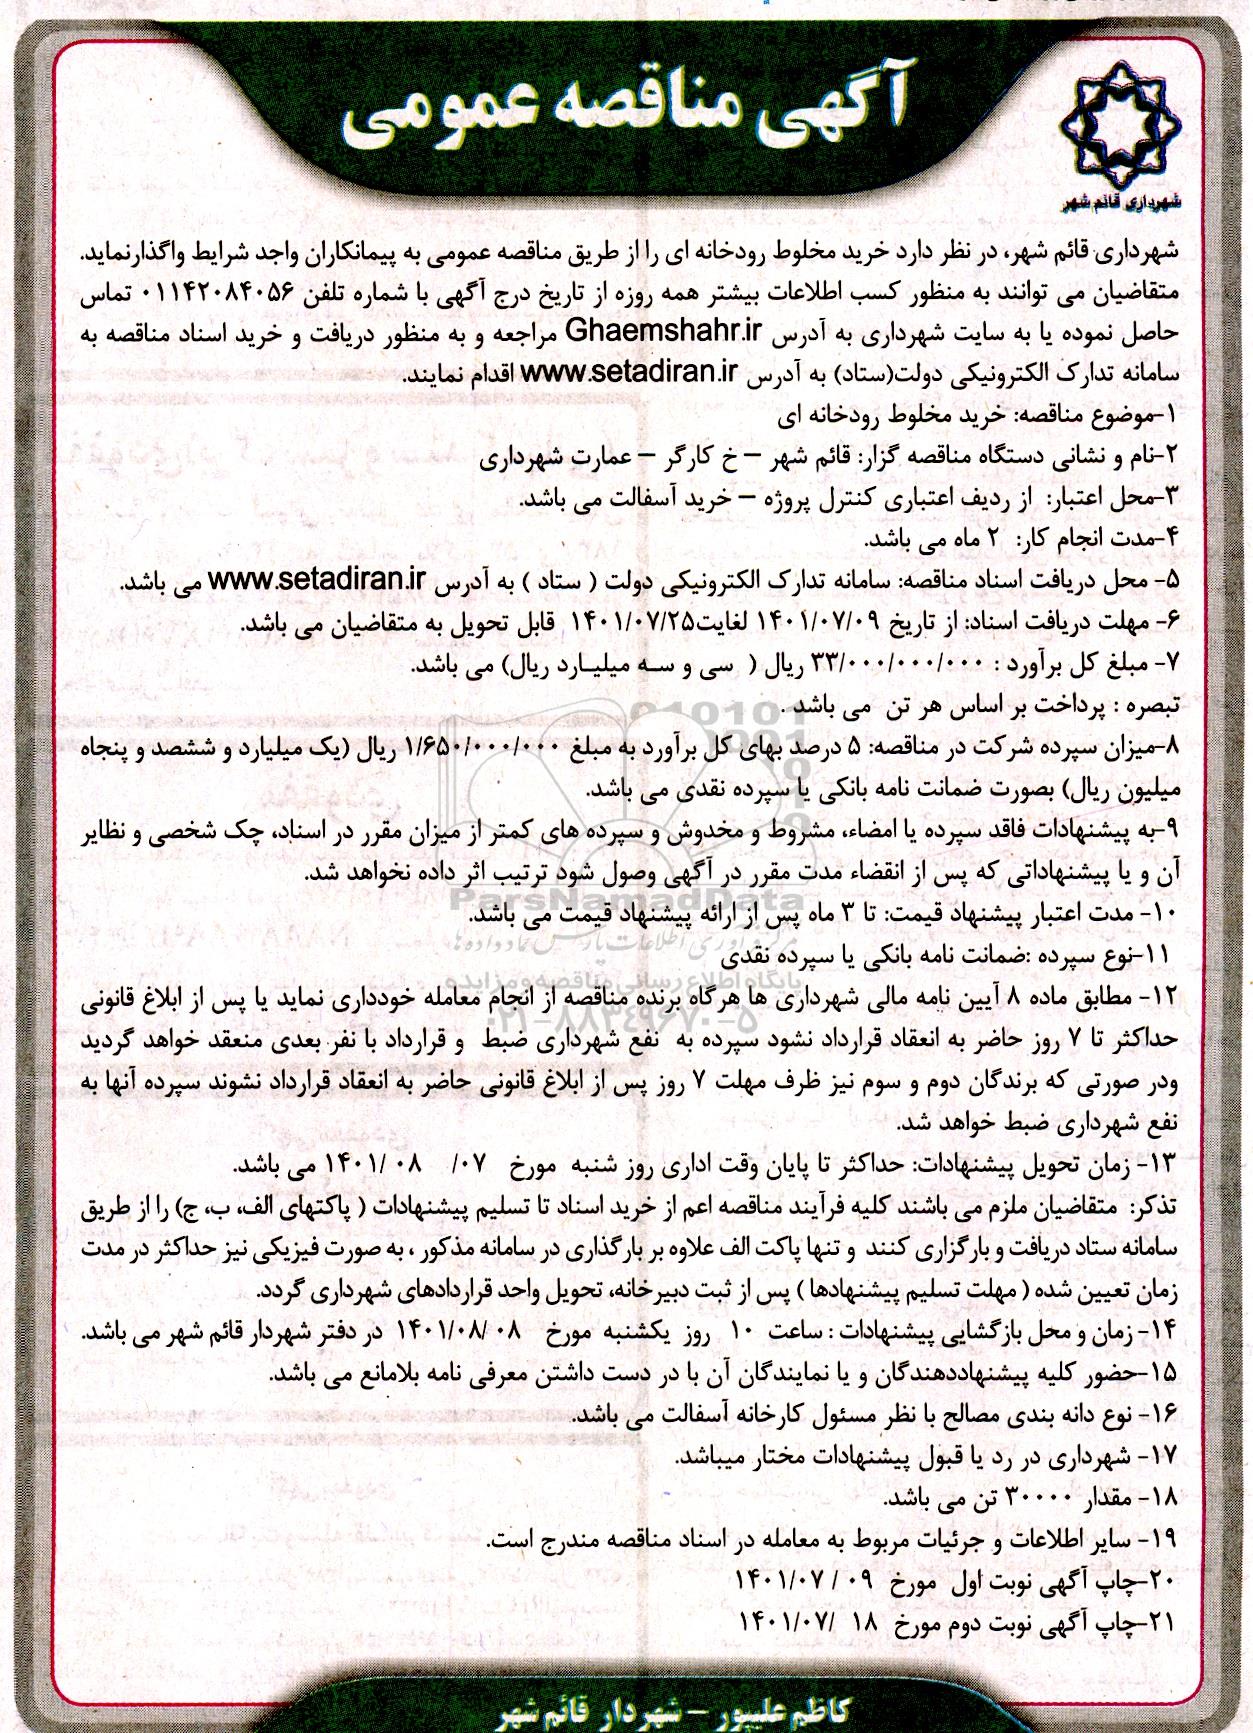 آگهی مناقصه عمومی
شهرداری قائم شهر
شهرداری قائم شهر، در نظر دارد خرید مخلوط رودخانه ای را از طریق مناقصه عمومی به پیمانکاران واجد شرایط واگذارنماید.
متقاضیان می توانند به منظور کسب اطلاعات بیشتر همه روزه از تاریخ درج آگهی با شماره تلفن ۰۱۱۴۲۰۸۴۰۵۶ تماس
حاصل نموده یا به سایت شهرداری به آدرس Ghaemshahr.ir مراجعه و به منظور دریافت و خرید اسناد مناقصه به
سامانه تدارک الکترونیکی دولت(ستاد) به آدرس www.setadiran.ir اقدام نمایند.
۱-موضوع مناقصه: خرید مخلوط رودخانه ای
۲-نام و نشانی دستگاه مناقصه گزار: قائم شهر – خ کارگر – عمارت شهرداری
۳-محل اعتبار: از ردیف اعتباری کنترل پروژه – خرید آسفالت می باشد.
۴-مدت انجام کار: ۲ ماه می باشد.
۵- محل دریافت اسناد مناقصه: سامانه تدارک الکترونیکی دولت ( ستاد ) به آدرس www.setadiran.ir می باشد.
۶- مهلت دریافت اسناد: از تاریخ ۱۴۰۱/۰۷/۰۹ لغایت۱۴۰۱/۰۷/۲۵ قابل تحویل به متقاضیان می باشد.
۷- مبلغ کل برآورد : ۳۳/۰۰۰/۰۰۰/۰۰۰ ریال ( سی و سه میلیارد ریال) می باشد.
تبصره : پرداخت بر اساس هر تن می باشد .
۸-میزان سپرده شرکت در مناقصه: ۵ درصد بهای کل برآورد به مبلغ ۱/۶۵۰/۰۰۰/۰۰۰ ریال (یک میلیارد و ششصد و پنجاه
میلیون ریال) بصورت ضمانت نامه بانکی یا سپرده نقدی می باشد.
۹-به پیشنهادات فاقد سپرده یا امضاء، مشروط و مخدوش و سپرده های کمتر از میزان مقرر در اسناد، چک شخصی و نظایر
آن و یا پیشنهاداتی که پس از انقضاء مدت مقرر در آگهی وصول شود ترتیب اثر داده نخواهد شد.
ParsNamadData
۱۰- مدت اعتبار پیشنهاد قیمت: تا ۳ ماه پس از ارائه پیشنهاد قیمت می باشد.
مرکز فرآوری اطلاعات پارس نماد داده ها
۱۱-نوع سپرده :ضمانت نامه بانکی یا سپرده نقدی
پایگاه اطلاع رسانی مناقصه و مزایده
۱۲- مطابق ماده ۸ آیین نامه مالی شهرداری ها هرگاه برنده مناقصه از انجام معامله خودداری نماید یا پس از ابلاغ قانونی
۰۲۱-۸۸۳۴۹۶۷۰-۵
حداکثر تا ۷ روز حاضر به انعقاد قرارداد نشود سپرده به نفع شهرداری ضبط و قرارداد با نفر بعدی منعقد خواهد گردید
ودر صورتی که برندگان دوم و سوم نیز ظرف مهلت ۷ روز پس از ابلاغ قانونی حاضر به انعقاد قرارداد نشوند سپرده آنها به
نفع شهرداری ضبط خواهد شد.
۱۳- زمان تحویل پیشنهادات: حداکثر تا پایان وقت اداری روز شنبه مورخ ۰۷/ ۱۴۰۱/ ۰۸ می باشد.
تذکر: متقاضیان ملزم می باشند کلیه فرآیند مناقصه اعم از خرید اسناد تا تسلیم پیشنهادات ( پاکتهای الف، ب، ج) را از طریق
سامانه ستاد دریافت و بارگزاری کنند و تنها پاکت الف علاوه بر بارگذاری در سامانه مذکور ، به صورت فیزیکی نیز حداکثر در مدت
زمان تعیین شده ( مهلت تسلیم پیشنهادها ) پس از ثبت دبیرخانه، تحویل واحد قراردادهای شهرداری گردد.
۱۴- زمان و محل بازگشایی پیشنهادات : ساعت ۱۰ روز یکشنبه مورخ ۱۴۰۱/۰۸/ ۰۸ در دفتر شهردار قائم شهر می باشد.
۱۵-حضور کلیه پیشنهاددهندگان و یا نمایندگان آن با در دست داشتن معرفی نامه بلامانع می باشد.
۱۶- نوع دانه بندی مصالح با نظر مسئول کارخانه آسفالت می باشد.
۱۷- شهرداری در رد یا قبول پیشنهادات مختار میباشد.
۱۸- مقدار ۳۰۰۰۰ تن می باشد.
۱۹- سایر اطلاعات و جرئیات مربوط به معامله در اسناد مناقصه مندرج است.
۲۰-چاپ آگهی نوبت اول مورخ ۰۹ / ۱۴۰۱/۰۷
۲۱-چاپ آگهی نوبت دوم مورخ ۱۸ /۱۴۰۱/۰۷
کاظم علیپور – شهردار قائم شهر